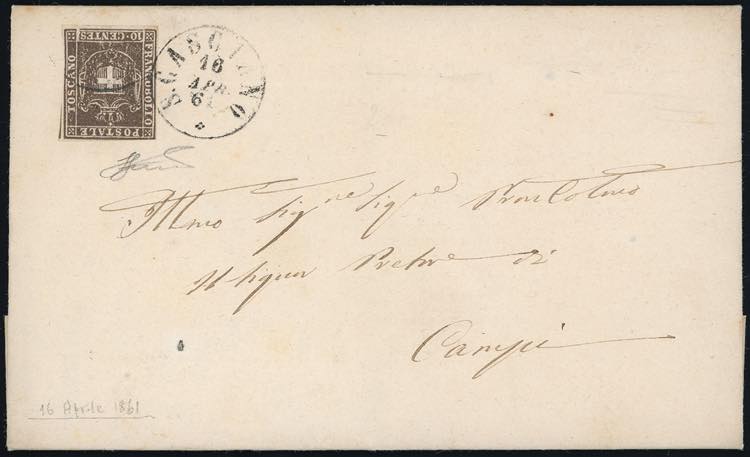 FRANCOBOLLO
POSTALE
TOSCANO
10 CENTES
S. CASCIANO
16
APR
61
Illmo Sigre Sigre Pron Colmo
Il Signor Pretore di
Campi
16 Aprile 1861